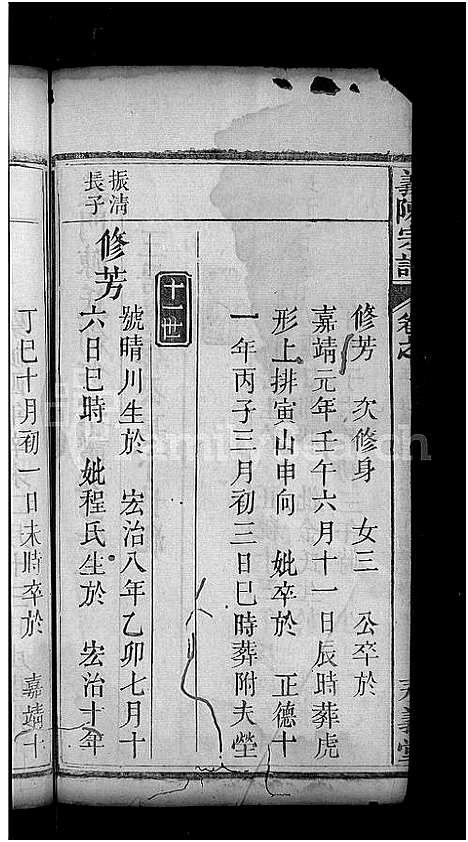 義陳宗譜
卷之
修芳 次修身 女三 公卒於
嘉靖元年壬午六月十一日辰時葬虎
形上排寅山申向 妣卒於 正德十
一年丙子三月初三日巳時葬附夫塋
十一世
振清
長子
修芳
號晴川生於 宏治八年乙卯七月十
六日巳時 妣程氏生於 宏治十年
丁巳十月初一日未時卒於 嘉靖十
familysearch